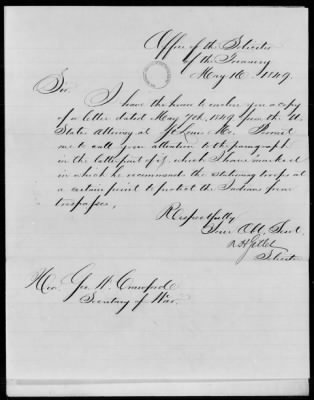 Office of the Solicitor
of the Treasury
May 16 1849.
Sir
I have the honor to enclose you a copy
of a letter dated May 7th. 1849 from the U
States Attorney at St Louis Mo. Permit
me to call your attention to the paragraph
in the latter part of it, which I have marked
in which he recommends the stationing troops at
a certain point to protect the Indians from
trespasses,
Respectfully
Your Obt. Servt.
R H Gillet
Solicitor
Hon. Geo. W. Crawford
Secretary of War.